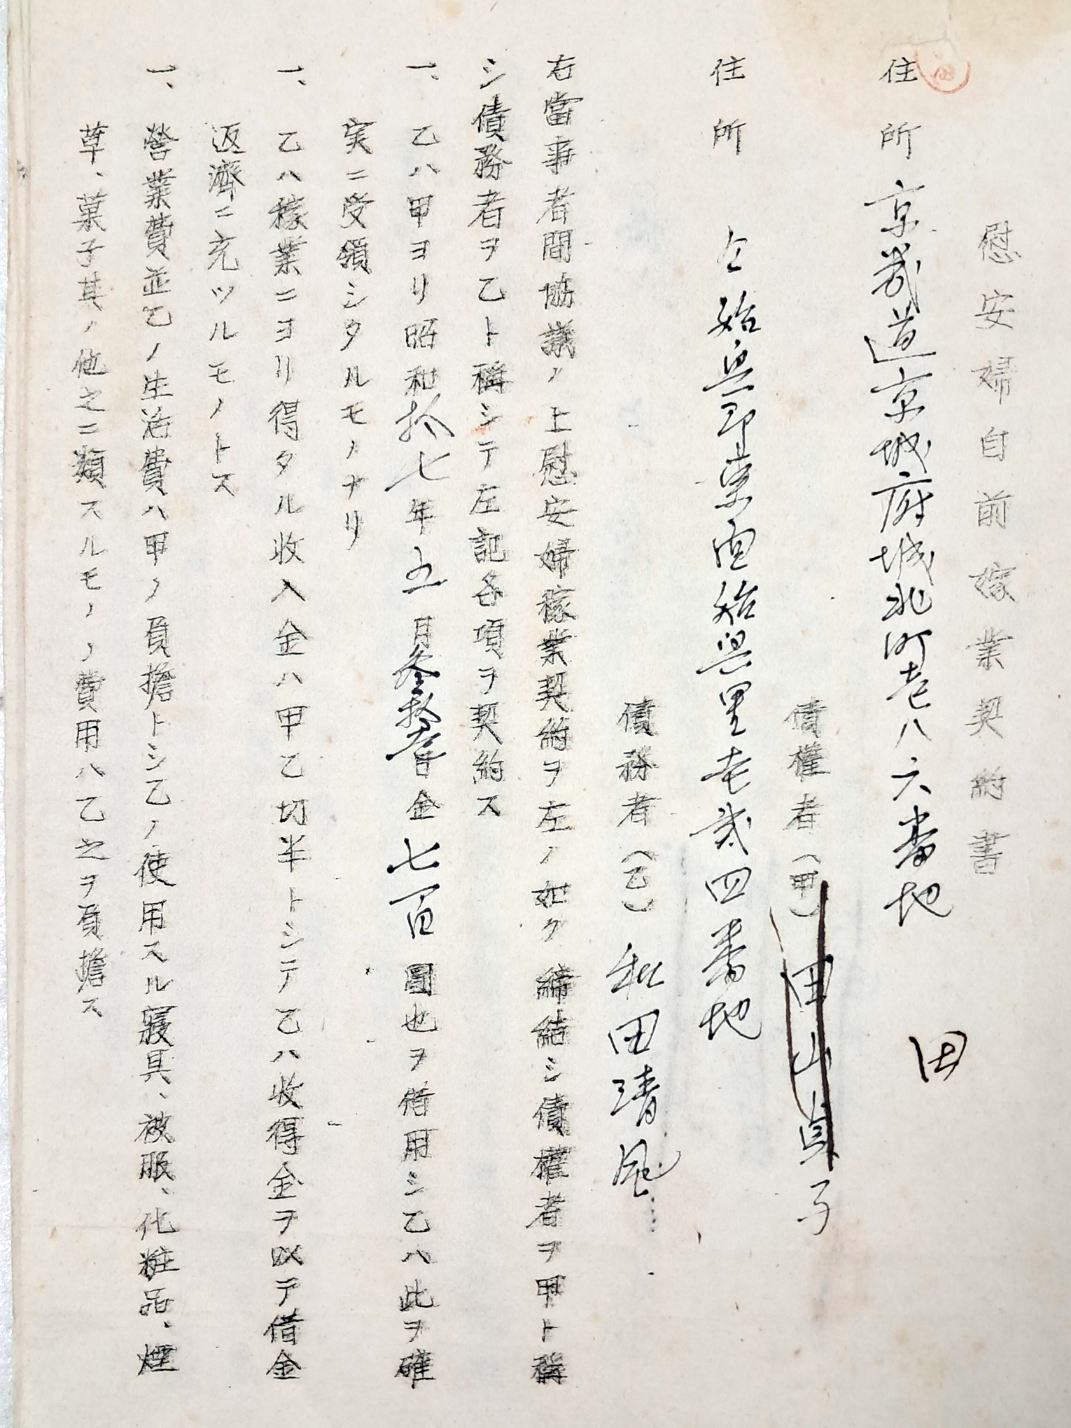 慰安婦自前嫁業契約書
住所 京畿道京城府城北町壱八六番地
田
債権者(甲) 田山貞子
住所 仝始興郡東面始興里壱弐四番地
債務者(乙) 和田清風
右當事者間協議ノ上慰安婦稼業契約ヲ左ノ如ク締結シ債權者ヲ甲ト稱
シ債務者ヲ乙ト稱シテ左記各項ヲ契約ス
一、乙ハ甲ヨリ昭和拾七年五月参拾日金七百圓也ヲ借用シ乙ハ此ヲ確
実ニ受領シタルモノナリ
一、乙ハ稼業ニヨリ得タル收入金ハ甲乙切半トシテ乙ハ收得金ヲ以テ借金
返濟ニ充ツルモノトス
一、營業費並乙ノ生活費ハ甲ノ負擔トシ乙ノ使用スル寢具、被服、化粧品、煙
草、菓子其ノ他之ニ類スルモノノ費用ハ乙之ヲ負擔ス